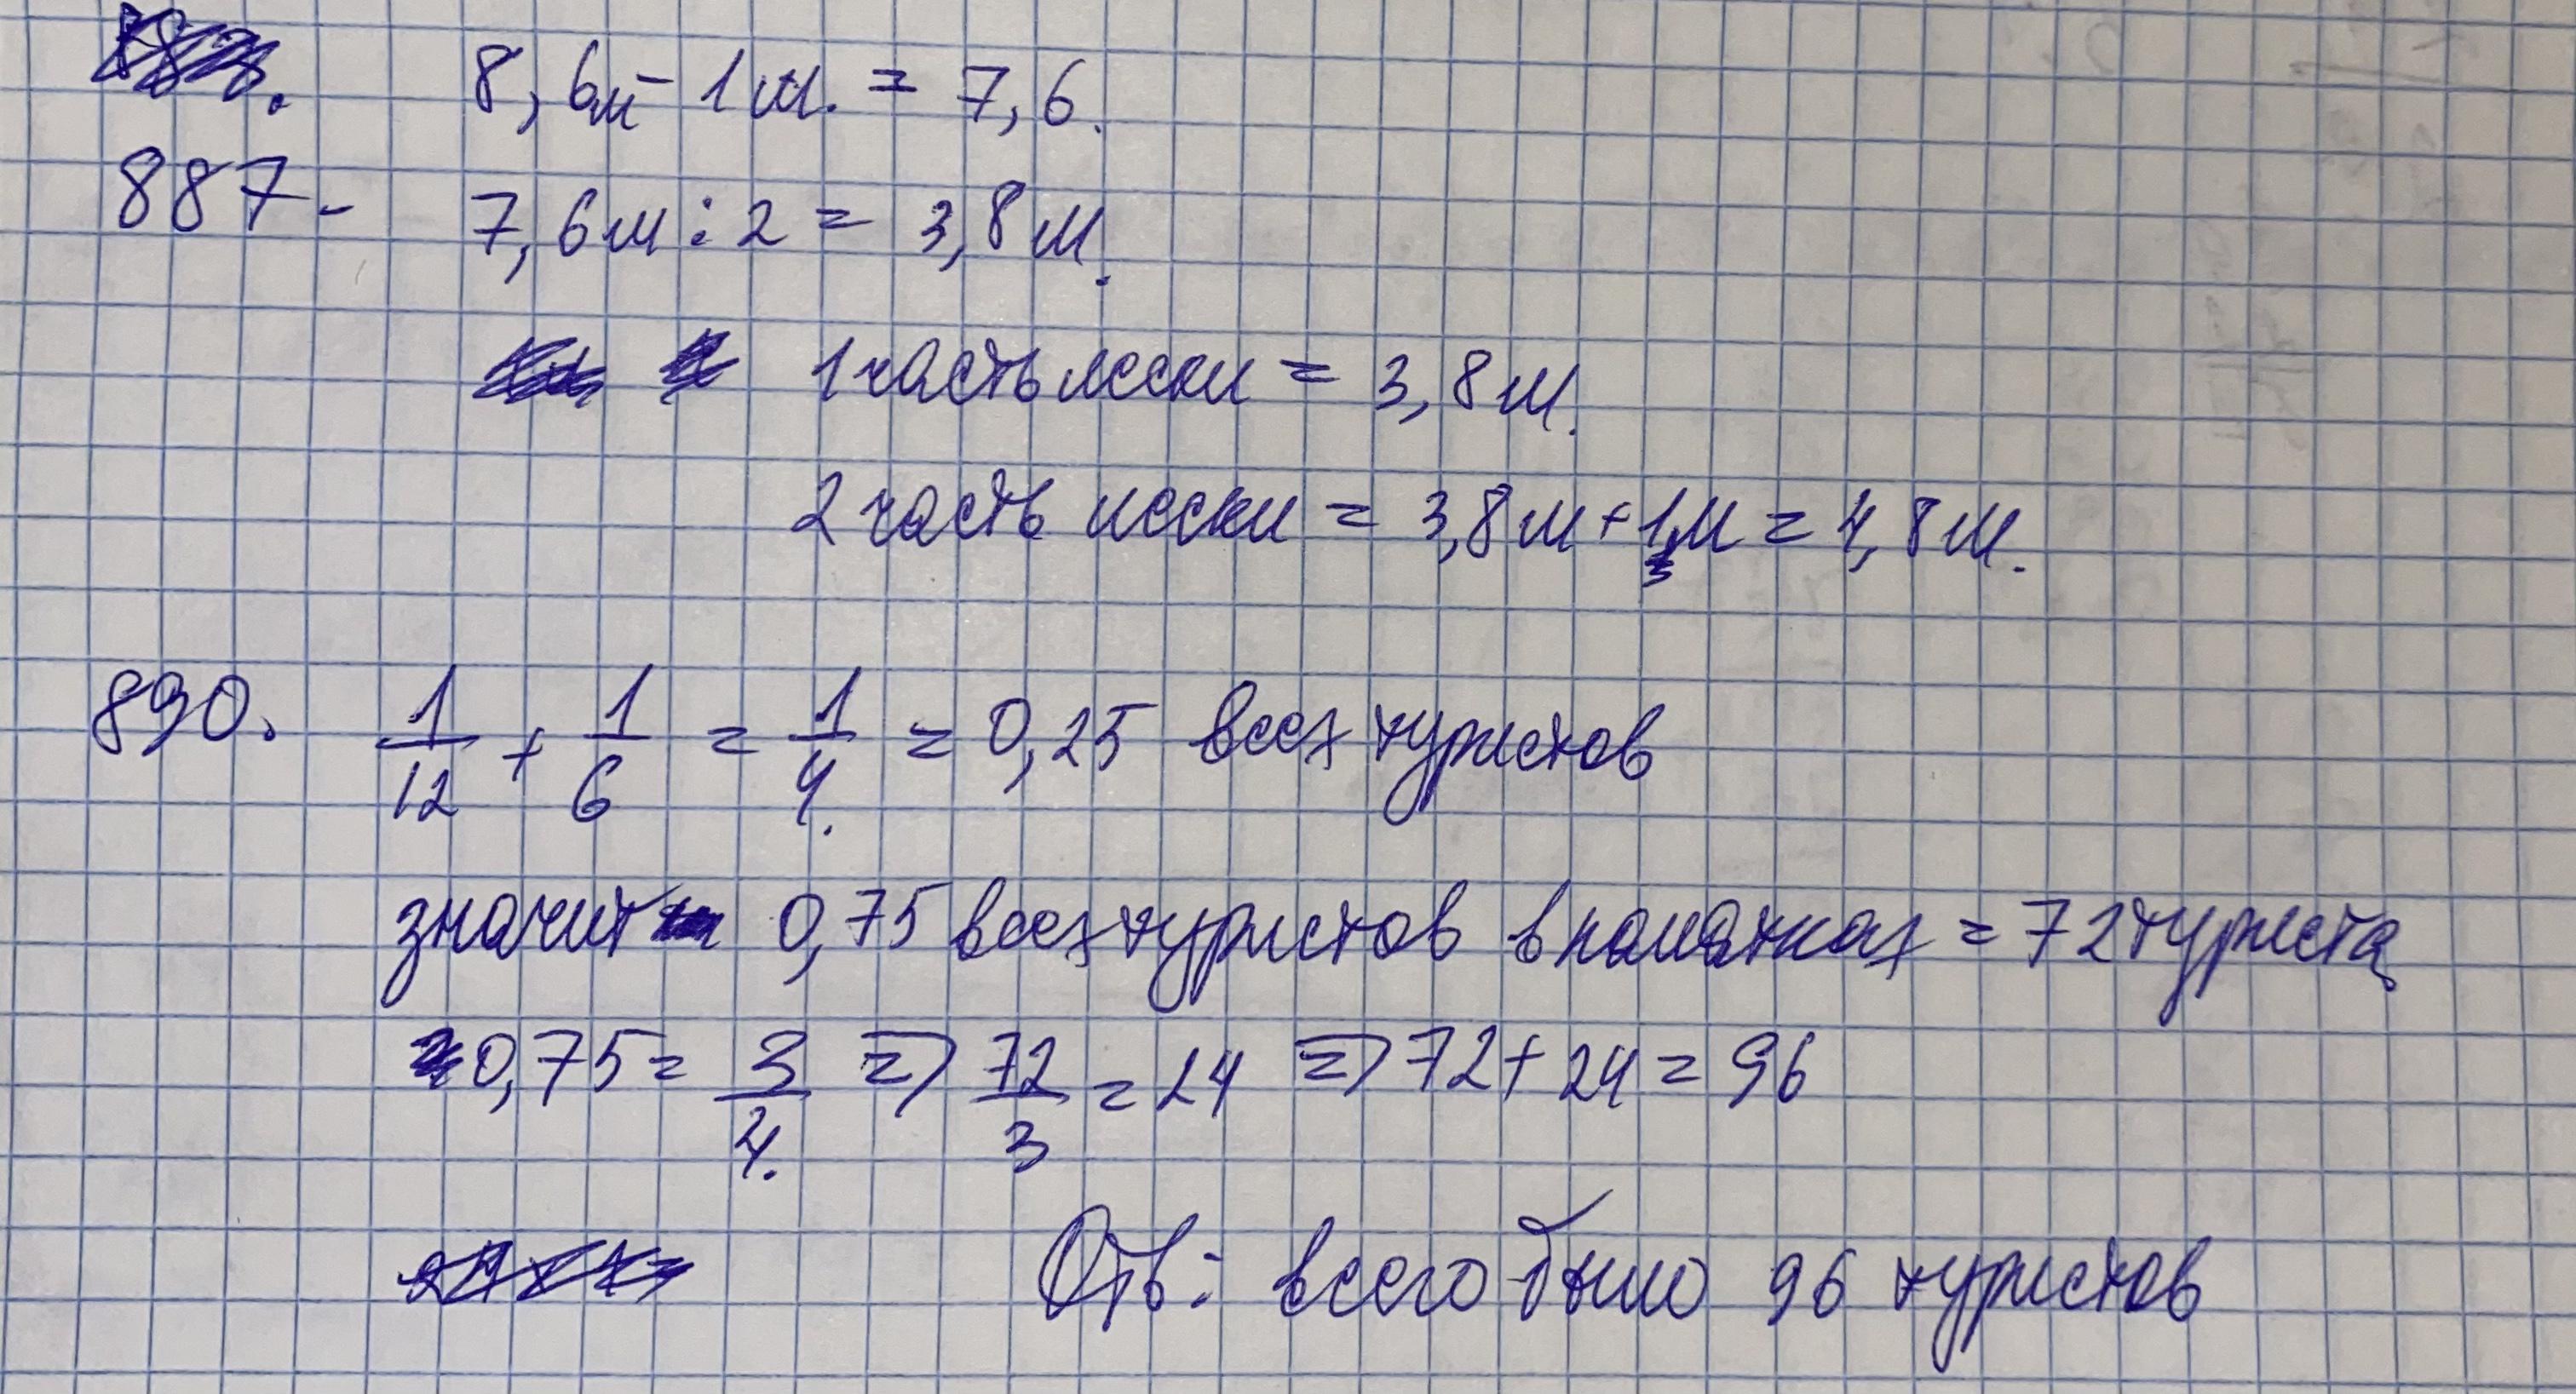 8,6м - 1м. = 7,6.
887- 7,6м : 2 = 3,8м.
1 часть лески = 3,8м.
2 часть лески = 3,8м + 1м = 4,8м.
890. 1/12 + 1/6 = 1/4. = 0,25 всех туристов
значит 0,75 всех туристов в палатках = 72 туриста
0,75 = 3/4. => 72/3 = 24 => 72 + 24 = 96
Отв: всего было 96 туристов